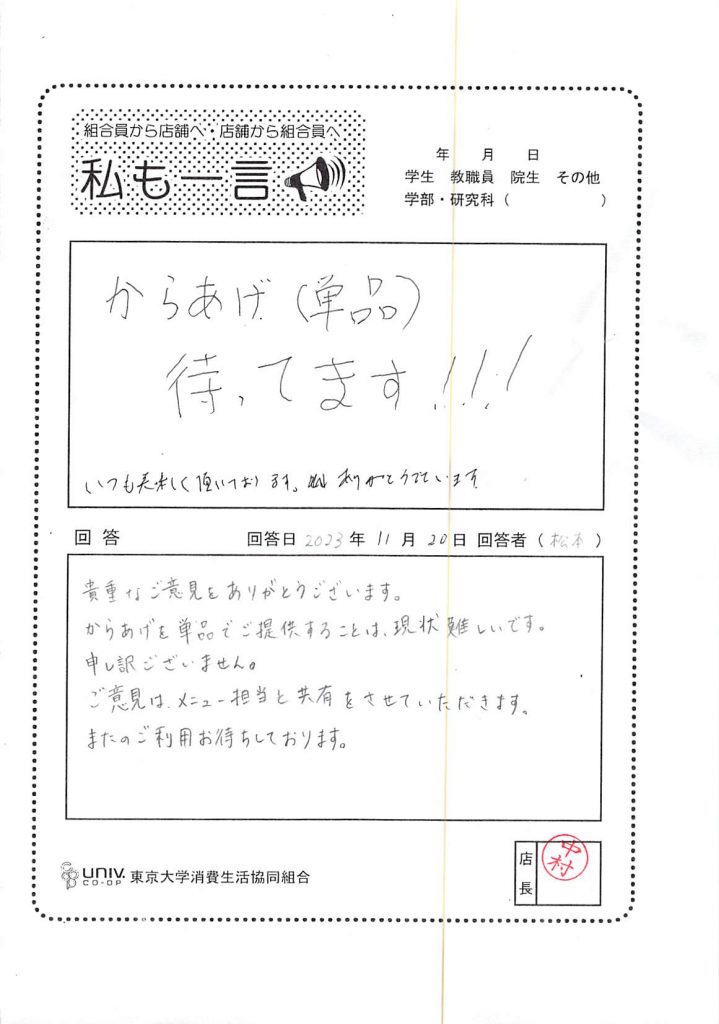 組合員から店舗へ・店舗から組合員へ
私も一言
年 月 日
学生 教職員 院生 その他
学部・研究科( )
からあげ(単品)
待ってます!!!
いつも美味しく頂いております。ありがとうございます
回答 回答日 2023年 11月 20日 回答者(松本)
貴重なご意見をありがとうございます。
からあげを単品でご提供することは、現状難しいです。
申し訳ございません。
ご意見は、メニュー担当と共有をさせていただきます。
またのご利用お待ちしております。
UNIV. CO-OP 東京大学消費生活協同組合
店長
中村